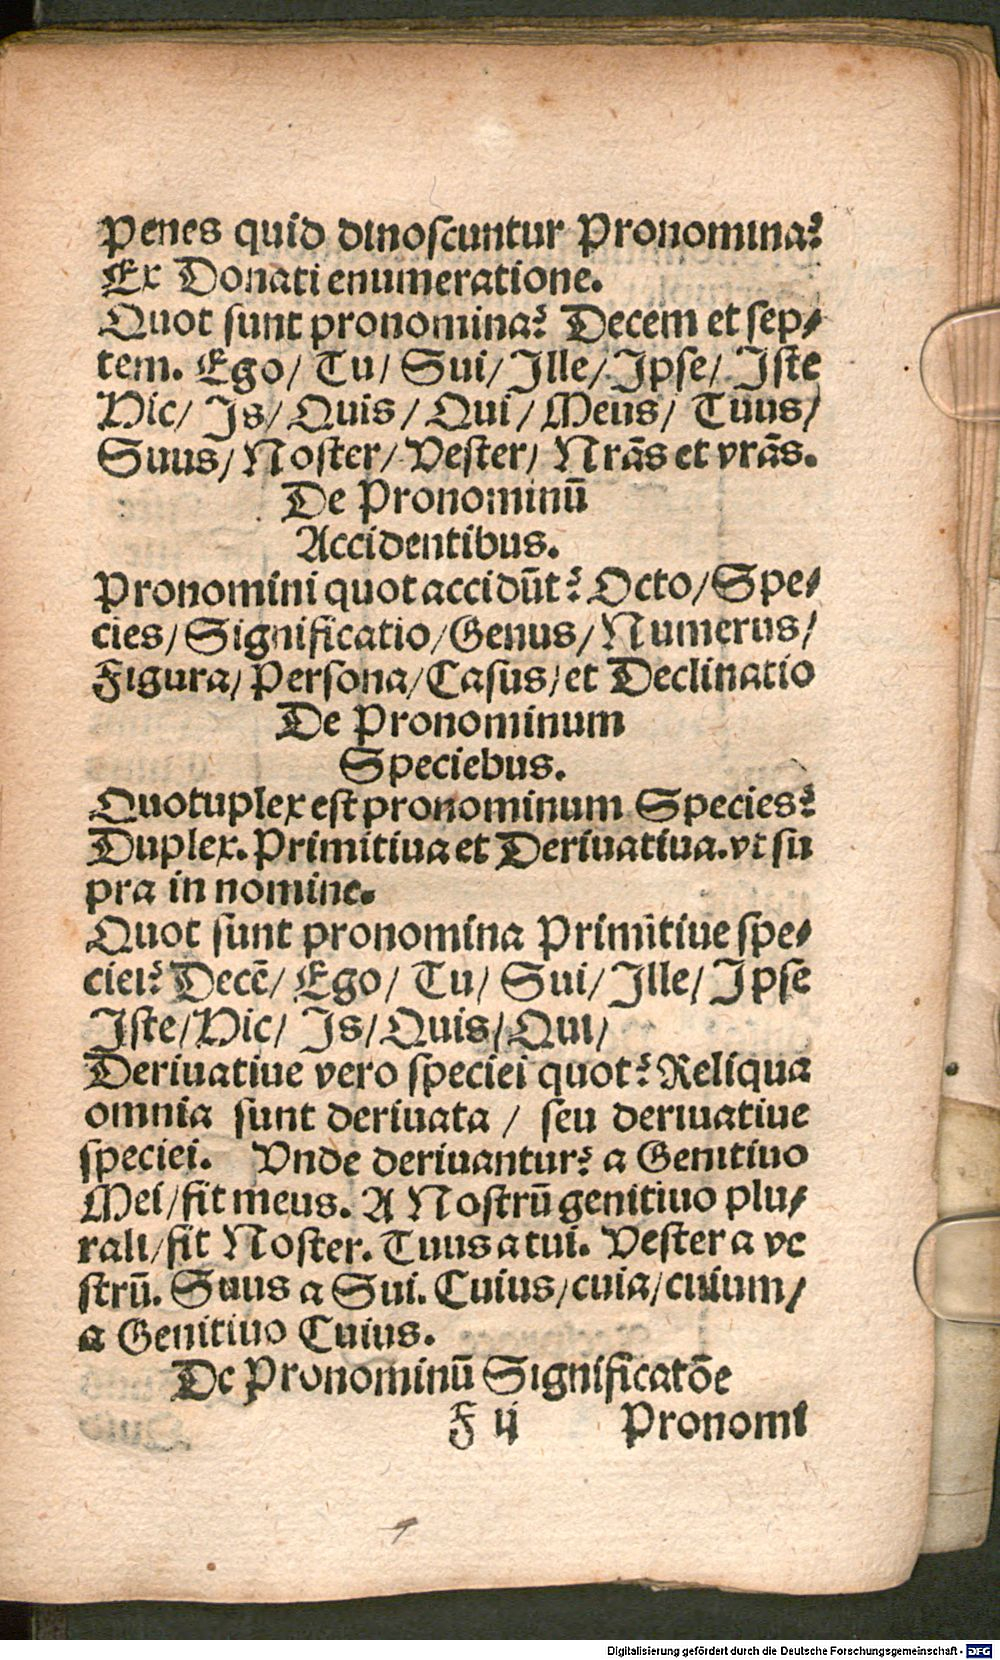 Penes quid dinoscuntur Pronomina?
Ex Donati enumeratione.
Quot sunt pronomina? Decem et sep⸗
tem. Ego/ Tu/ Sui/ Ille/ Ipse/ Iste
Hic/ Is/ Quis/ Qui/ Meus/ Tuus/
Suus/ Noster/ Vester/ Nrãs et vrãs.
De Pronominū
Accidentibus.
Pronomini quot accidūt? Octo/ Spe⸗
cies/ Significatio/ Genus/ Numerus/
Figura/ Persona/ Casus/ et Declinatio
De Pronominum
Speciebus.
Quotuplex est pronominum Species?
Duplex. Primitiua et Deriuatiua. vt su
pra in nomine.
Quot sunt pronomina Primitiue spe⸗
ciei? Decē/ Ego/ Tu/ Sui/ Ille/ Ipse
Iste/ Hic/ Is/ Quis/ Qui/
Deriuatiue vero speciei quot? Reliqua
omnia sunt deriuata / seu deriuatiue
speciei. Vnde deriuantur? a Genitiuo
Mei/ fit meus. A Nostrū genitiuo plu⸗
rali/ fit Noster. Tuus a tui. Vester a ve
strū. Suus a Sui. Cuius/ cuia/ cuium/
a Genitiuo Cuius.
De Pronominū Significatōe
F ij Pronomi
Digitalisierung gefördert durch die Deutsche Forschungsgemeinschaft - DFG